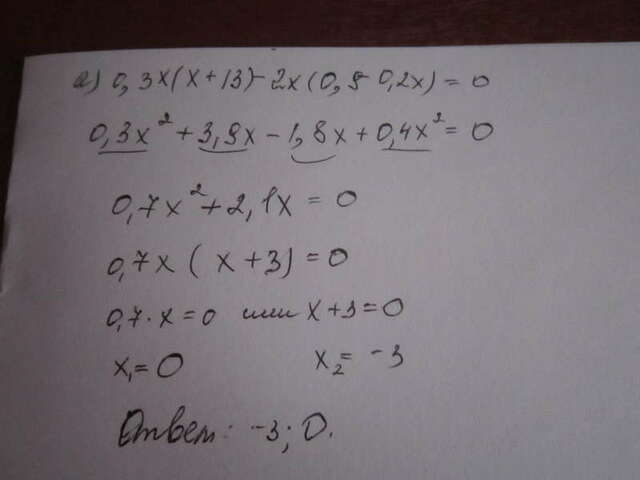 а) 0,3x(x+13)-2x(0,9-0,2x)=0
0,3x²+3,9x-1,8x+0,4x²=0
0,7x²+2,1x=0
0,7x(x+3)=0
0,7·x=0 или x+3=0
x₁=0 x₂=-3
Ответ: -3; 0.